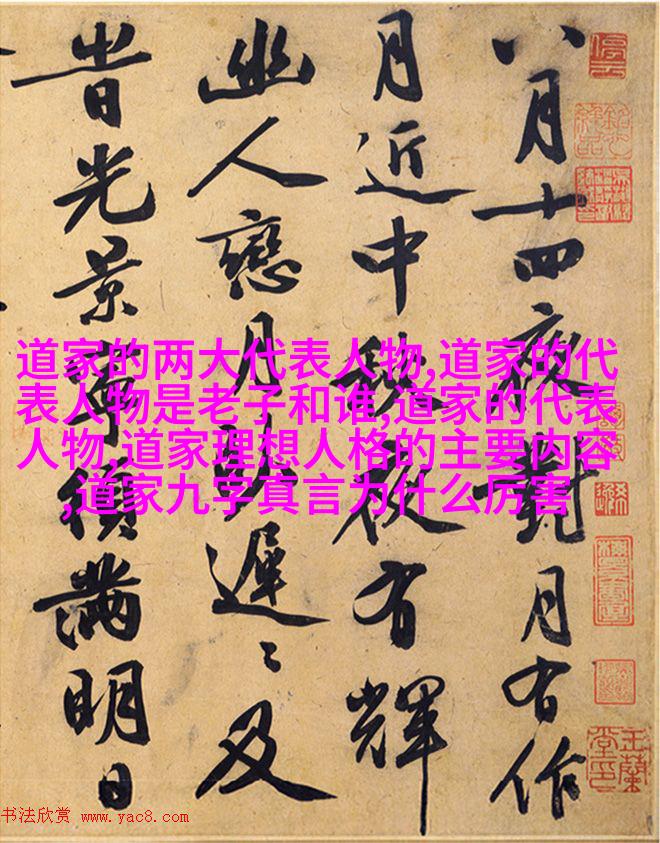 八月十四夜對月有作
月近中秋夜有輝
幽人戀月卧遲〻及
旹光景寧須滿明日
道家的两大代表人物,道家的代
表人物是老子和谁,道家的代表
人物,道家理想人格的主要内容
,道家九字真言为什么厉害
停雲
玉蘭堂印
书法欣赏 www.yac8.com